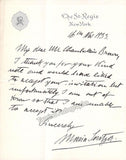 The St. Regis
New York
16th Dec 1953
My dear Mr Chamberlain Brown,
I thank you for your kind
note and would have liked
to accept your invitation but
unfortunately I am not
so am unable
to accept
Sincerely
Maria